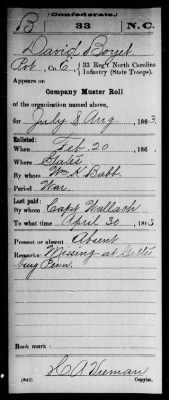 (Confederate.)
B 33 N.C.
David Boyet
Pvt., Co. C, 33 Reg't North Carolina
Infantry (State Troops).
Company Muster Roll
of the organization named above,
for July & Aug, 1863.
Enlisted:
When Feb. 20, 186
Where Gates
By whom Wm K. Babb
Period War
Last paid:
By whom Capt Wallach
To what time April 30, 1863
Present or absent Absent
Remarks: Missing at Gettys
burg Penn.
Book mark:
(642) Copyist.